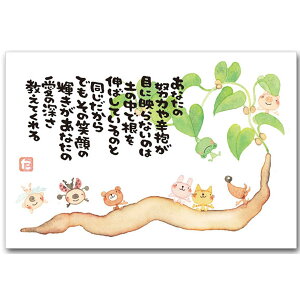 あなたの
努力や辛抱が
目に映らないのは
土の中で根を
伸ばしているのと
同じだから
でもその笑顔の
輝きがあなたの
愛の深さ
教えてくれる
た